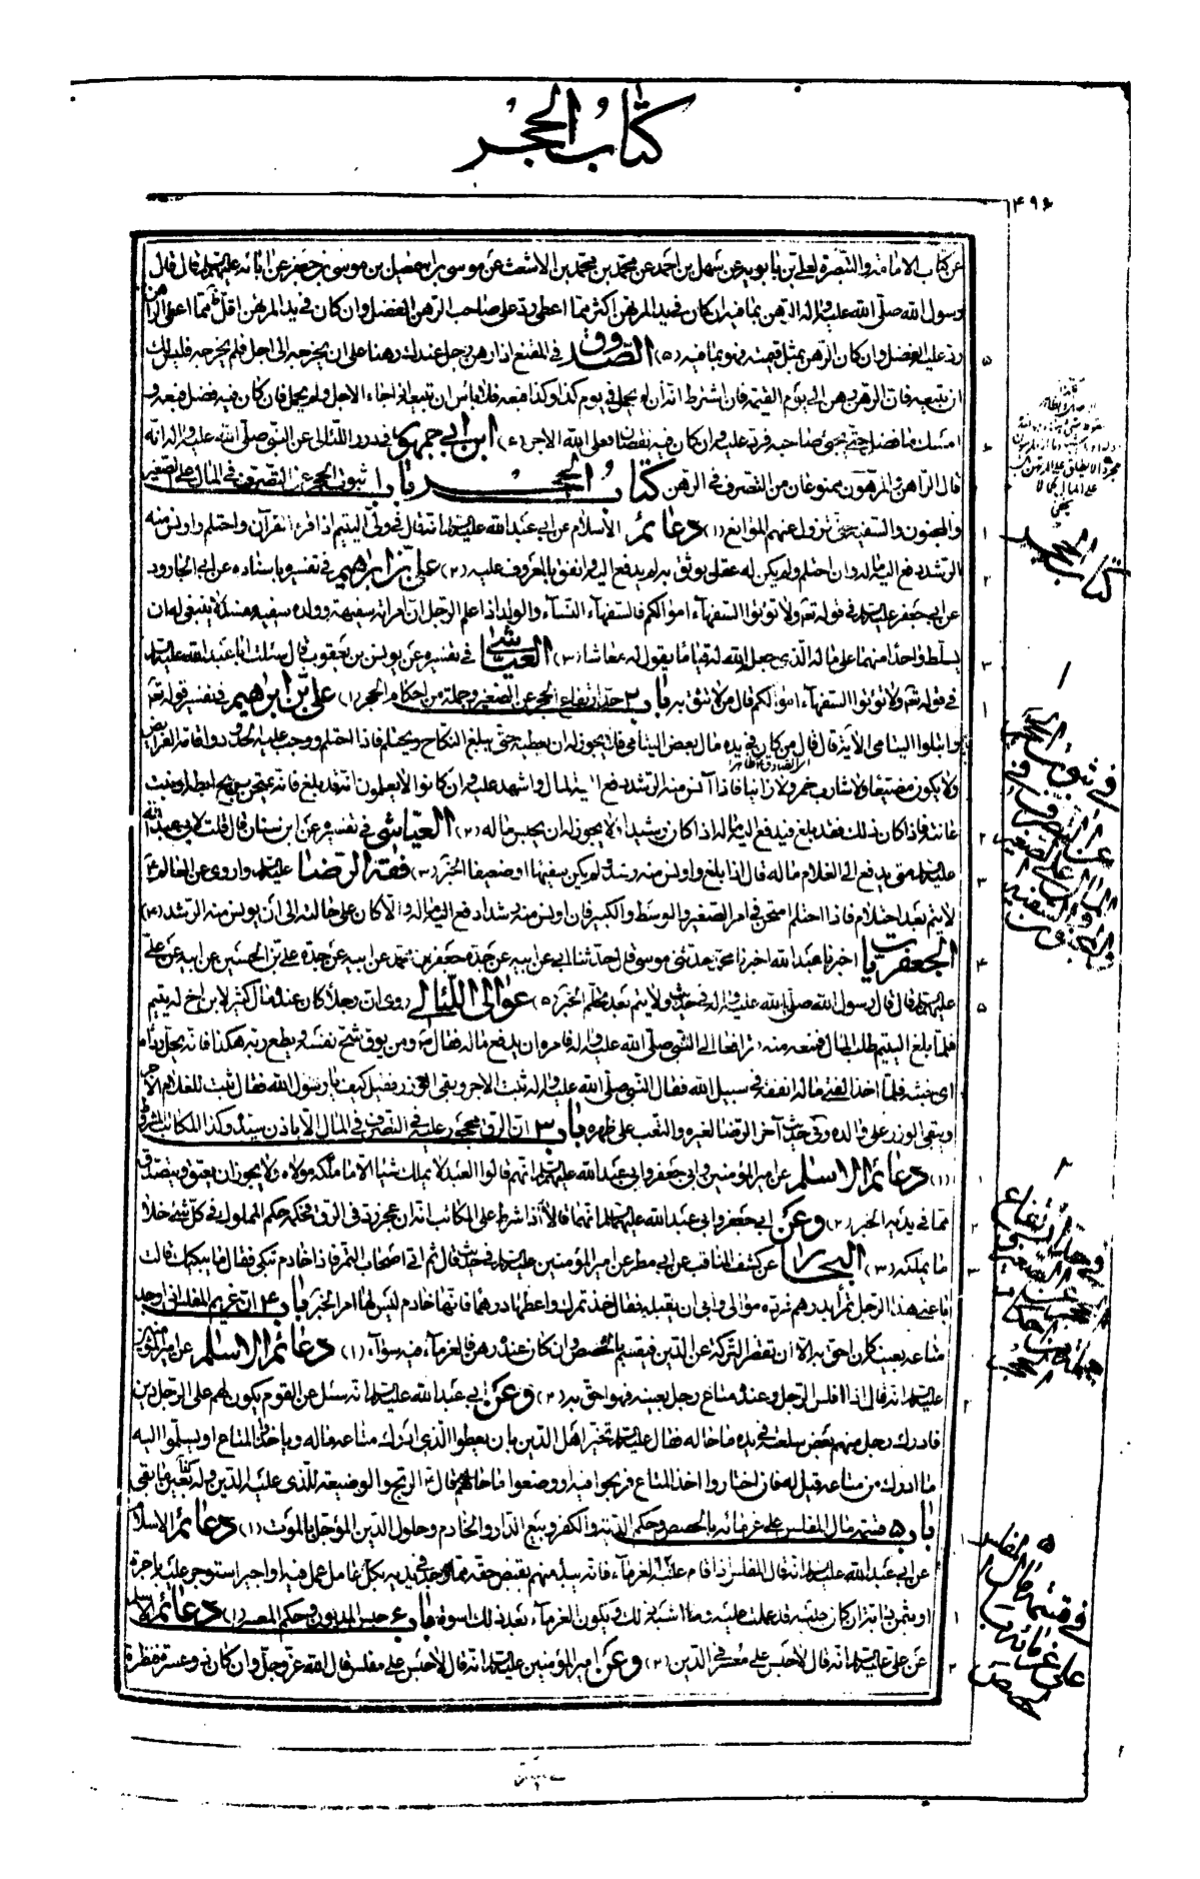 كتاب الحجر
۴۹۶
عن كتاب الامامة والتبصرة لعلي بن بابويه عن سهل بن احمد عن محمد بن محمد بن الاشعث عن موسى بن اسمعيل بن موسى بن جعفر عن ابائه عليهم السلام قال قال
رسول الله صلى الله عليه واله الرهن بما فيه ان كان في يد المرتهن اكثر مما اعطى رد على صاحب الرهن الفضل وان كان في يد المرتهن اقل مما اعطى الراهن
رد عليه الفضل وان كان الرهن بمثل قيمته فهو بما فيه (۵) الصدوق في المقنع اذا رهن رجل عندك رهنا على ان يخرجه الى اجل فلم يخرجه فليس لك
ان تبيعه فان الرهن رهن الى يوم القيمة فان اشترط انه ان لم يحمل في يوم كذا وكذا فبعه فلا باس ان تبيعه اذا جاء الاجل ولم يحمل فان كان فيه فضل فبعه و
امسك ما فضل حتى يجئ صاحبه فرد عليه وان كان فيه نقصان فعلى الله الاجر (۶) ابن ابي جمهور في درر اللئالي عن النبي صلى الله عليه واله انه
قال الراهن والمرتهن ممنوعان من التصرف في الرهن كتاب الحجر باب ۱ ثبوت الحجر عن التصرف في المال على الصغير
والمجنون والسفيه حتى تزول عنهم الموانع (۱) دعائم الاسلام عن ابي عبد الله عليه السلام انه قال في ولي اليتيم اذا قرء القرآن واحتلم واونس منه
الرشد دفع اليه ماله وان احتلم ولم يكن له عقل يوثق به لم يدفع اليه وانفق بالمعروف عليه (۲) علي بن ابراهيم في تفسيره باسناده عن ابي الجارود
عن ابي جعفر عليه السلام في قوله تع ولا تؤتوا السفهآء اموالكم فالسفهآء النسآء والولد اذا علم الرجل ان امراته سفيهة وولده سفيه مفسد لا ينبغي له ان
يسلط واحدا منهما على ماله الذي جعل الله له قياما يقول له معاشا (۳) العياشي في تفسيره عن يونس بن يعقوب قال سئلت ابا عبد الله عليه السلام
في قوله تع ولا تؤتوا السفهآء اموالكم قال من لا تثق به باب ۲ حد ارتفاع الحجر عن الصغير وجملة من احكام الحجر (۱) علي بن ابراهيم في تفسير قوله تع
وابتلوا اليتامى الاية قال قال من كان في يده مال بعض اليتامى فلا يجوز له ان يعطيه حتى يبلغ النكاح ويحتلم فاذا احتلم ووجب عليه الحدود واقامة الفرائض
ولا يكون مضيعا ولا شارب خمر ولا زانيا فاذا آنس منه الرشد دفع اليه المال واشهد عليه وان كانوا لا يعلمون انه قد بلغ فانه يمتحن بريح ابطه او نبت
عانته فاذا كان ذلك فقد بلغ فيدفع اليه ماله اذا كان رشيدا ولا يجوز له ان يحبس ماله (۲) العياشي في تفسيره عن ابن سنان قال قلت لابي عبد الله
عليه السلام متى يدفع الى الغلام ماله قال اذا بلغ واونس منه رشد ولم يكن سفيها او ضعيفا الخبر (۳) فقه الرضا عليه السلام واروى عن العالم ع
لا يتم بعد احتلام فاذا احتلم امتحن في امر الصغير والوسط والكبير فان اونس منه رشد دفع اليه ماله والا كان على حالته الى ان يونس منه الرشد (۴)
الجعفريات اخبرنا عبد الله اخبرنا محمد حدثني موسى قال حدثنا ابي عن ابيه عن جده جعفر بن محمد عن ابيه عن جده علي بن الحسين عن ابيه عن علي
عليه السلام قال قال رسول الله صلى الله عليه واله في حديث ولا يتم بعد تحلم الخبر (۵) عوالي اللئالي روى ان رجلا كان عنده مال كثير لابن اخ له يتيم
فلما بلغ اليتيم طلب المال فمنعه منه فترافعا الى النبي صلى الله عليه واله فامره ان يدفع ماله فقال ومن يوق شح نفسه ويطع ربه هكذا فانه يحل داره
اي جنته فلما اخذ الفتى ماله انفقه في سبيل الله فقال النبي صلى الله عليه واله ثبت الاجر وبقى الوزر فقيل كيف يا رسول الله فقال ثبت للغلام الاجر
ويبقى الوزر على والده وفي حديث آخر الرضا لغيره والتعب على ظهره باب ۳ ان الرق محجور عليه في التصرف في المال الا باذن سيده وكذا المكاتب المشروط
(۱) دعائم الاسلام عن امير المؤمنين وابي جعفر وابي عبد الله عليهم السلام انهم قالوا العبد لا يملك شيئا الا ما ملكه مولاه ولا يجوز ان يعتق ويتصدق
مما في يديه الخبر (۲) وعن ابي جعفر وابي عبد الله عليهما السلام انهما قالا اذا شرط على المكاتب انه ان عجز رد في الرق فحكمه حكم المملوك في كل شئ خلا
ما يملكه (۳) البحار عن كشف المناقب عن ابي مطر عن امير المؤمنين عليه السلام في حديث قال ثم اتى اصحاب التمر فاذا خادم تبكي فقال ما يبكيك قالت
باعني هذا الرجل تمرا بدرهم فرده موالي وابى ان يقبله فقال خذ تمرك واعطها درهما فانها خادم ليس لها امر الخبر باب ۴ ان غريم المفلس اذا وجد
متاعه بعينه كان احق به الا ان يقصر التركة عن الدين فيقسم بالحصص وان كان عنده رهن فالغرمآء فيه سوآء (۱) دعائم الاسلام عن امير المؤمنين
عليه السلام انه قال اذا افلس الرجل وعنده متاع رجل بعينه فهو احق به (۲) وعن ابي عبد الله عليه السلام انه سئل عن القوم يكون لهم على الرجل دين
فادرك رجل منهم بعض سلعته في يده ما حاله فقال عليه السلام تخير اهل الدين بان يعطوا الذي ادرك متاعه ماله وياخذوا المتاع او يسلموا اليه
ما ادرك من متاعه قيل له فان اختاروا اخذ المتاع فربحوا فيه او وضعوا ما حالهم قال الربح والوضيعة للذي عليه الدين وله
باب ۵ قسمة مال المفلس على غرمائه بالحصص وحكم الدية والكفن وبيع الدار والخادم وحلول الدين المؤجل بالموت (۱) دعائم الاسلام
عن ابي عبد الله عليه السلام انه قال المفلس اذا قام عليه الغرمآء فانه يبدء منهم بقبض حقه مما وجد في يديه كل عامل عمل فيه او اجير استوجر عليه باجرة
او ثمن دابة ان كان حبسه قد عملت عليه وما اشبه ذلك ثم يكون الغرمآء بعد ذلك اسوة باب ۶ حبس المديون وحكم المعسر (۱) دعائم الاسلام
عن علي عليه السلام انه قال لا حبس على معسر في الدين (۲) وعن امير المؤمنين عليه السلام انه قال لا حبس على مفلس قال الله عز وجل وان كان ذو عسرة فنظرة
كتاب الحجر
۱
في ثبوت الحجر
عن التصرف في
المال على الصغير
والمجنون والسفيه
۲
في حد ارتفاع
الحجر عن الصغير و
جملة من احكام
الحجر
۵
في قسمة مال المفلس
على غرمائه
بالحصص